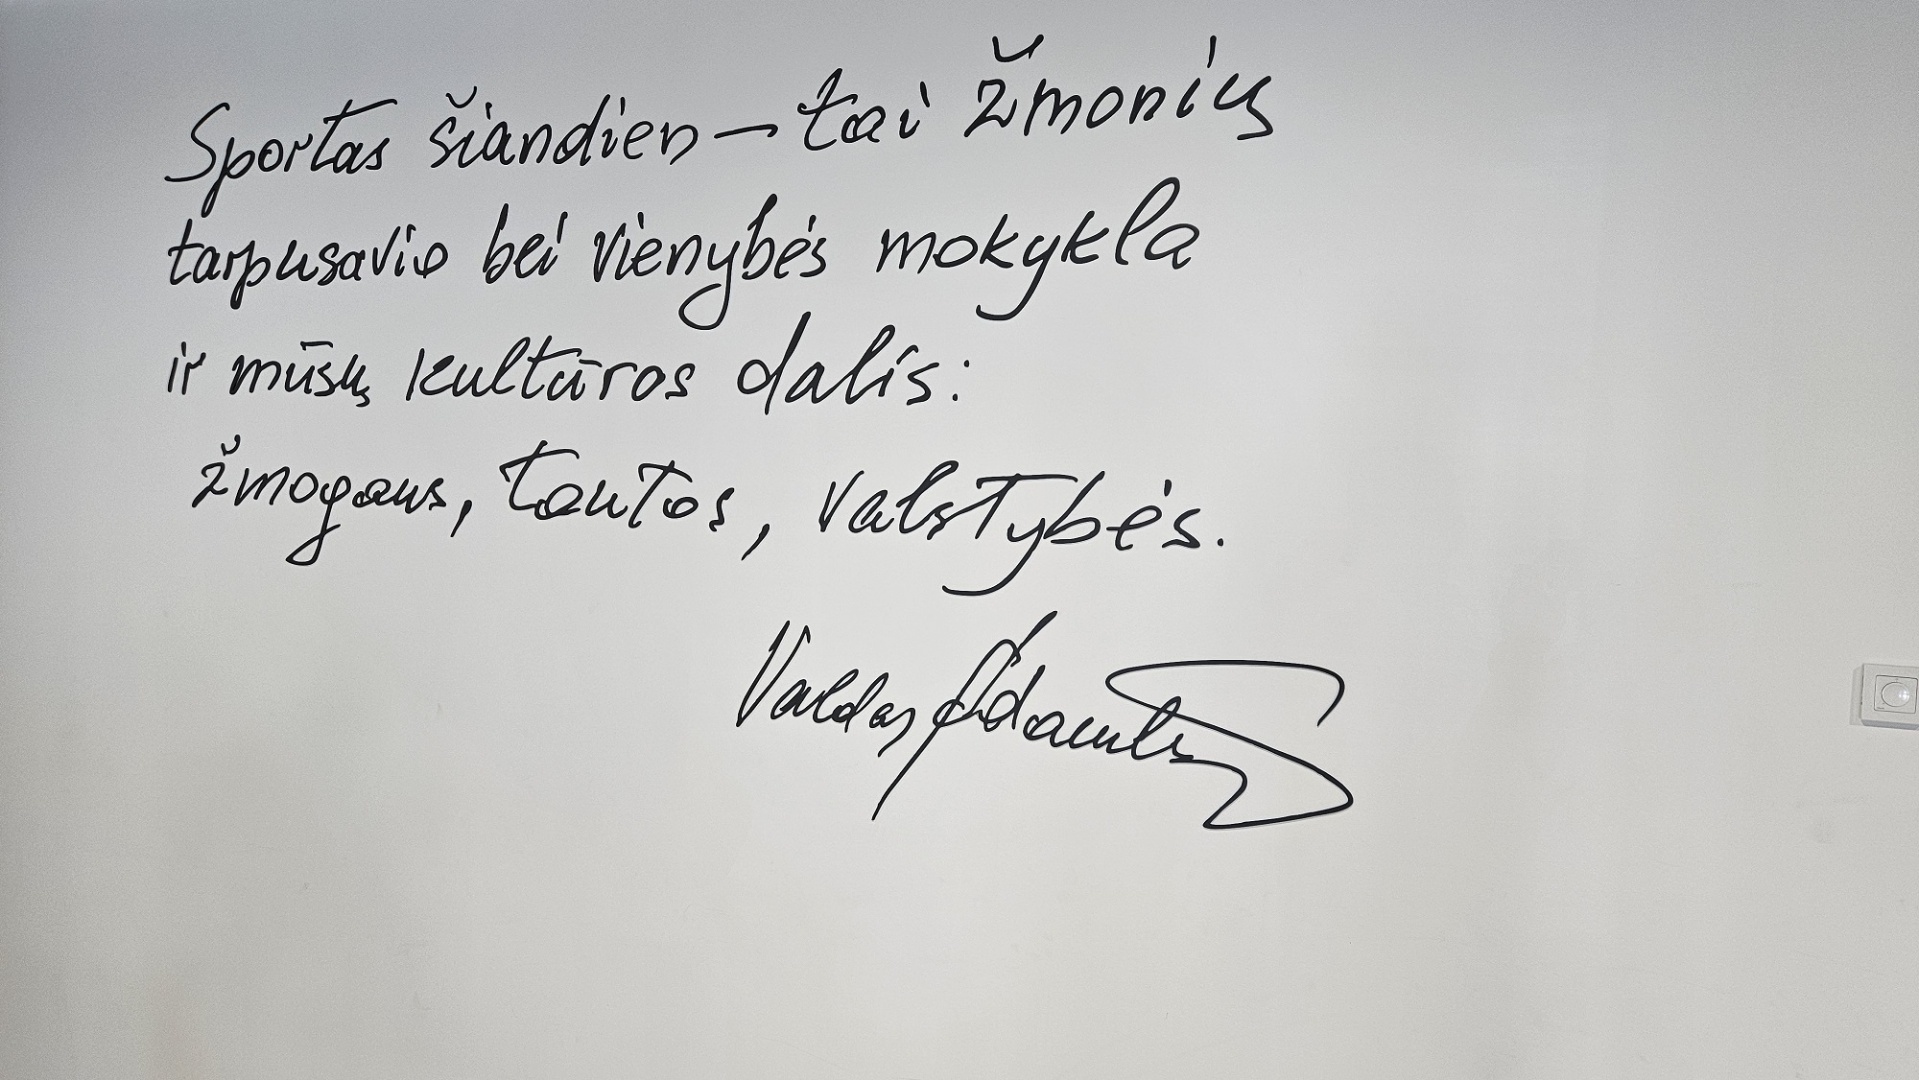 Sportas šiandien – tai žmonių
tarpusavio bei vienybės mokykla
ir mūsų kultūros dalis:
žmogaus, tautos, valstybės.
Valdas Adamkus